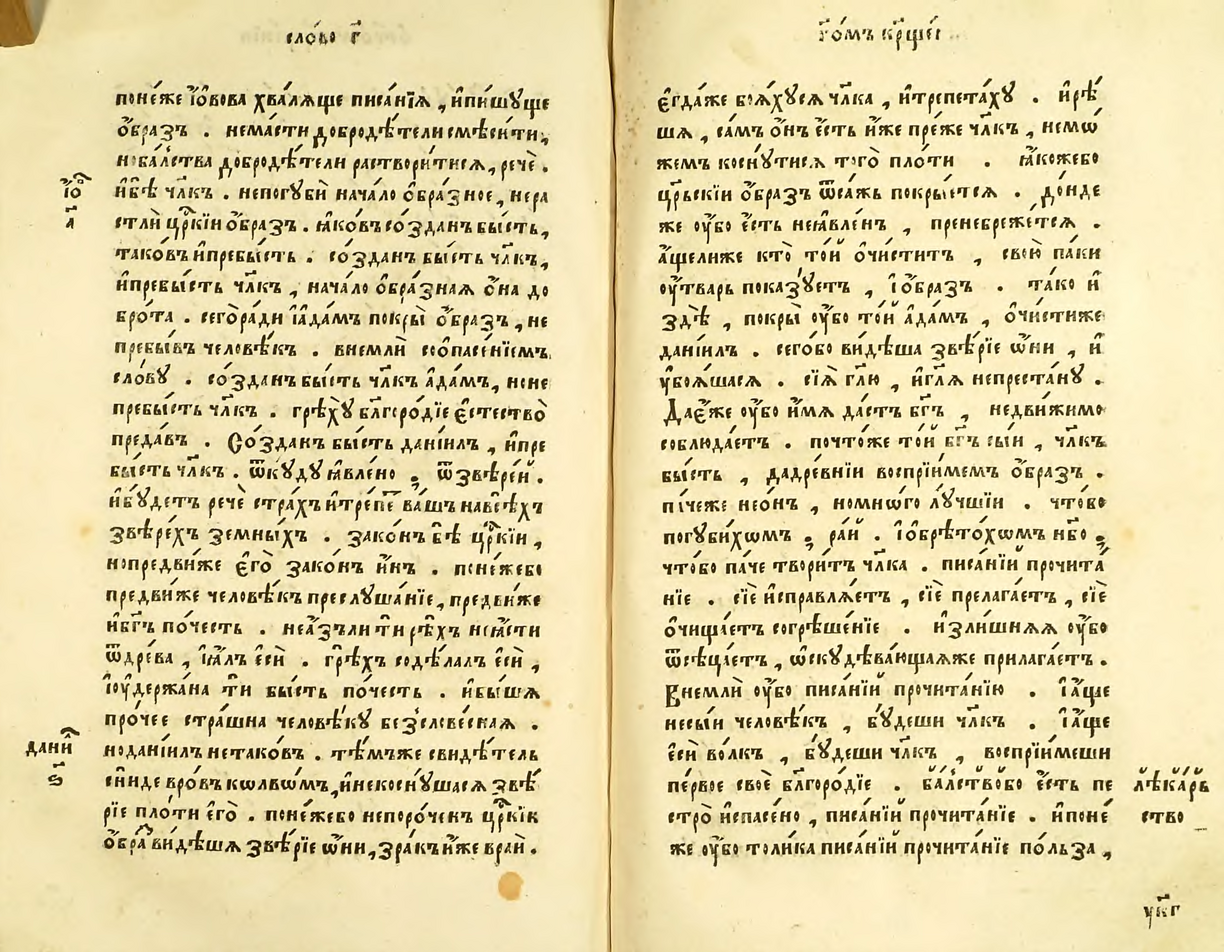 сло́во г҃
поне́же і҆о́вова хва́лѧще писа́нїѧ, и҆пи́шꙋще
о҆́бразъ . нема́сти добродѣ́тели смѣси́ти,
нобалства добродѣ́тели растворитисѧ, речѐ .
їѡ҃
а҃
и҆бѣ̀ чл҃къ . непогꙋбѝ нача́ло о҆́бразное, нера
стлѝ цр҃кїи о҆́браз . ꙗ҆ко́въ со́зданъ бы́сть,
тако́въ и҆пребы́сть . со́зданъ бы́сть чл҃къ,
и҆пребы́сть чл҃къ , нача́ло о҆бра́знаѧ ѻ҆на до
брота̀ . сегора́ди і҆а҆да́мъ покры̀ о҆́бразъ , не
пребы́въ человѣ́къ . внемлѝ соопасе́нїемъ
сло́вꙋ . со́зданъ бы́сть чл҃къ а҆да́мъ, ноне
пребы́сть чл҃къ . грѣхꙋ̀ бл҃горо́дїе є҆стество̀
преда́въ . Со́зданъ бы́сть данїи́лъ , и҆пре
бы́сть чл҃къ . ѿкꙋ́дꙋ ꙗ҆вле́но , ѿзвѣре́й .
и҆бꙋ́детъ речѐ стра́хъ и҆тре́пе ва́шъ навсѣ́хъ
звѣре́хъ земны́хъ . зако́нъ бѣ̀ цр҃кїи ,
нопредви́же є҆го̀ зако́нъ и҆́нъ . поне́жебо
предви́же человѣ́къ преслꙋша́нїе, предви́же
и҆бг҃ъ по́честь . неа҆́зъли тѝ рѣ́хъ неꙗ҆́сти
ѿдре́ва , і҆ꙗ҆́лъ є҆сѝ . грѣ́хъ содѣ́лалъ є҆сѝ ,
і҆оу҆де́ржана тѝ бы́сть по́честь . и҆бы́шѧ
про́чее стра́шна человѣ́кꙋ безслове́снаѧ .
дани҃
ѕ҃
ноданїи́лъ нетако́въ . тѣ́мъже свидѣ́тель
сни́де вро́въ колвѡ́мъ, и҆некоснꙋ́шасѧ звѣ́
рїе пло́ти є҆го̀ . поне́жебо непоро́ченъ цр҃кїи
о҆́бра ви́дѣшѧ звѣ́рїе ѡ҆́ни, зра́къ и҆́же вра́и .
гѡ́мъ кр҃щеї
є҆гда́же боѧ́хꙋсѧ чл҃ка , и҆трепета́хꙋ . и҆рѣ́
шѧ , са́мъ ѻ҆́нъ є҆́сть и҆́же пре́же чл҃къ , немо́
жемъ коснꙋ́тисѧ того̀ пло́ти . ꙗ҆́коже бо
цр҃ьскїи о҆́бразъ ѿса́жь покры́етсѧ . до́нде
же оу҆́бо є҆́сть неꙗ҆вле́нъ , пренебреже́тсѧ .
а҆́щелиже кто̀ то́и о҆чи́ститъ , свою̀ па́ки
оу҆́тварь показꙋ́етъ , і҆о҆́браз . та́ко и҆
здѣ̀ , покры̀ оу҆́бо то́и а҆да́мъ , о҆чи́стиже
данїи́лъ . сего́бо ви́дѣша звѣ́рїе ѡ҆́ни , и҆
ᲂубоѧ́шасѧ . сїѧ̀ гл҃ю , и҆гл҃ѧ непреста́нꙋ .
Дае́же оу҆́бо и҆́мѧ да́стъ бг҃ъ , недви́жимо
соблюда́етъ . почто́же то́и бг҃ъ сы́и , чл҃къ
бы́сть , дадре́внїи воспрїи́мемъ о҆́бразъ .
па́чеже нео́нъ , номно́го лꙋ́чшїи . что́бо
погꙋби́хѡмъ , ра́и . і҆о҆брѣто́хѡмъ нб҃о ,
что́бо па́че твори́тъ чл҃ка . писа́нїи прочита́
нїе . сїѐ и҆справлѧ́етъ , сїѐ прелага́етъ , сїѐ
о҆чища́етъ согрѣше́нїе . и҆зли́шнѧѧ оу҆́бо
ѿсѣца́етъ , ѡ҆скꙋдѣва́ющаѧже прилага́етъ .
Внемлѝ оу҆́бо писа́нїи прочита́нїю . і҆а҆́ще
неси́и человѣ́къ , бꙋ́деши чл҃къ . і҆а҆́ще
є҆сѝ во́лкъ , бꙋ́деши чл҃къ , воспрїи́меши
пе́рвое своѐ бл҃горо́дїе . ба́лствобо є҆́сть пе
стро̀ и҆спасе́но , писа́нїи прочита́нїе . и҆поне́
лѣка́рь
ство
же оу҆́бо толи́ка писа́нїи прочита́нїе по́льза ,
ук҃г